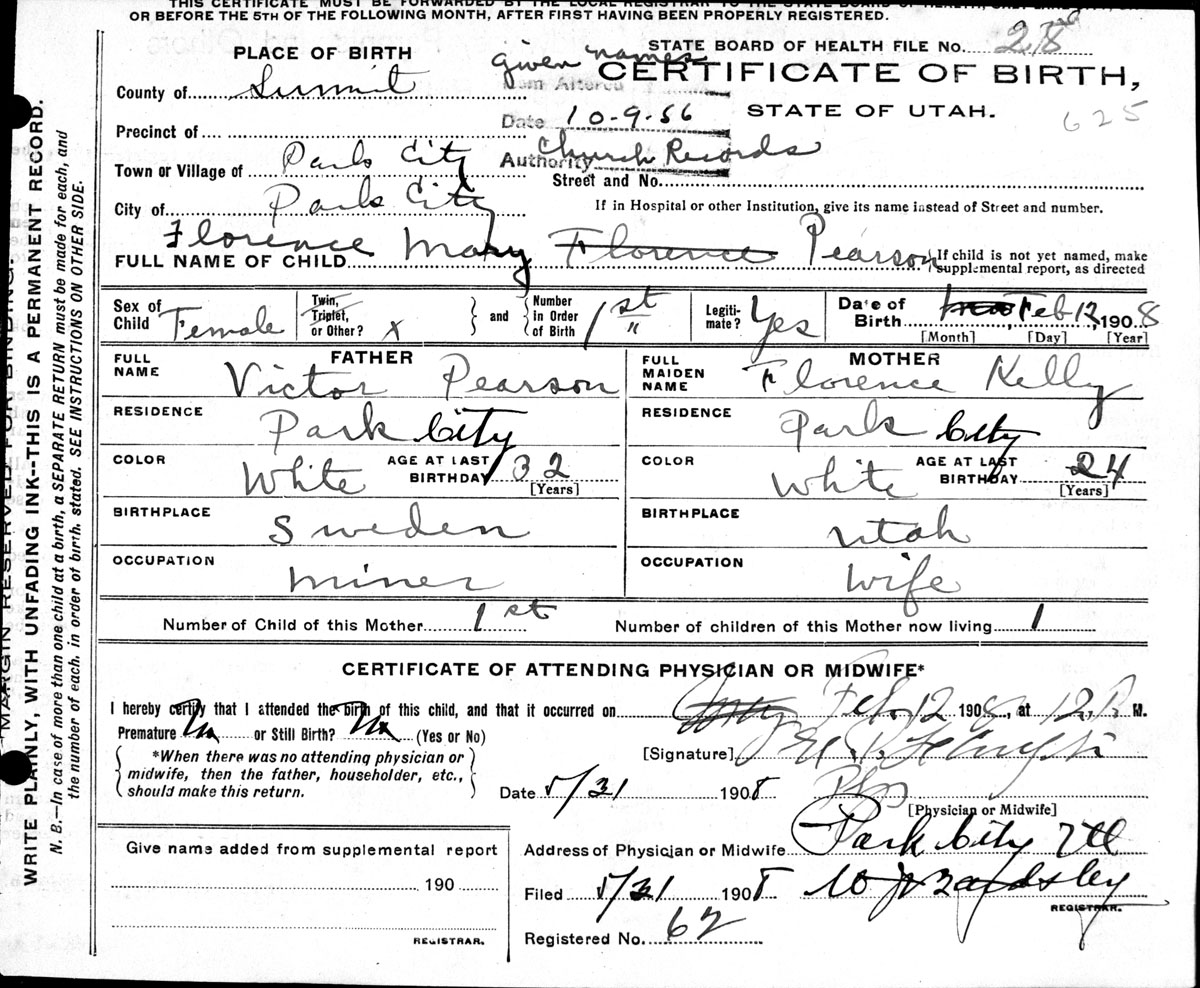 THIS CERTIFICATE MUST BE FORWARDED BY THE LOCAL REGISTRAR TO THE STATE BOARD OF HEALTH,
OR BEFORE THE 5TH OF THE FOLLOWING MONTH, AFTER FIRST HAVING BEEN PROPERLY REGISTERED.
STATE BOARD OF HEALTH FILE No. 28
PLACE OF BIRTH
given names
CERTIFICATE OF BIRTH,
County of Summit
Altered
STATE OF UTAH.
625
Date 10-9-56
Precinct of
Authority Church Records
Town or Village of Park City
Street and No.
City of Park City
If in Hospital or other Institution, give its name instead of Street and number.
FULL NAME OF CHILD Florence Mary Florence Pearson
If child is not yet named, make
supplemental report, as directed
Sex of Child Female
Twin, Triplet, or Other? x
and
Number in Order of Birth 1st "
Legitimate? Yes
Date of Birth Feb 12, 1908
[Month] [Day] [Year]
FATHER
FULL NAME Victor Pearson
RESIDENCE Park City
COLOR White AGE AT LAST BIRTHDAY 32
[Years]
BIRTHPLACE Sweden
OCCUPATION miner
MOTHER
FULL MAIDEN NAME Florence Kelly
RESIDENCE Park City
COLOR White AGE AT LAST BIRTHDAY 24
[Years]
BIRTHPLACE Utah
OCCUPATION Wife
Number of Child of this Mother 1st Number of children of this Mother now living 1
CERTIFICATE OF ATTENDING PHYSICIAN OR MIDWIFE*
I hereby certify that I attended the birth of this child, and that it occurred on Feb. 12 1908, at 12 P. M.
Premature No or Still Birth? No (Yes or No)
*When there was no attending physician or
midwife, then the father, householder, etc.,
should make this return.
[Signature]
Date 5/31 1908
Phys
[Physician or Midwife]
Address of Physician or Midwife Park City
Filed 5/31 1908
REGISTRAR.
Registered No. 62
Give name added from supplemental report
190
REGISTRAR.
MARGIN RESERVED FOR BINDING.
WRITE PLAINLY, WITH UNFADING INK--THIS IS A PERMANENT RECORD.
N. B.—In case of more than one child at a birth, a SEPARATE RETURN must be made for each, and
the number of each, in order of birth, stated. SEE INSTRUCTIONS ON OTHER SIDE.